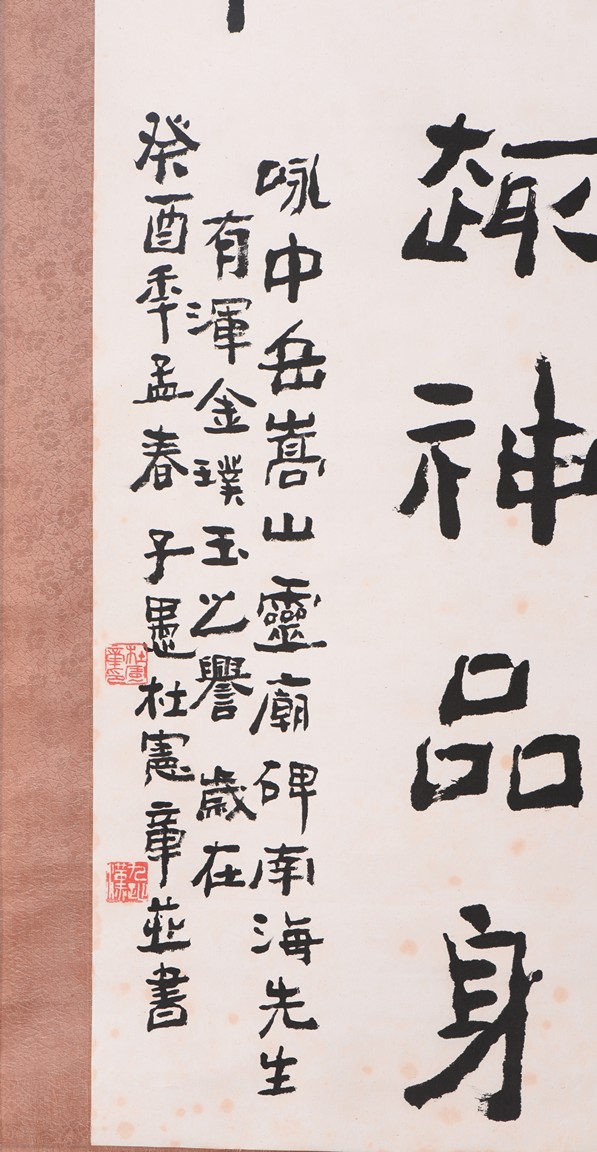 趣神品身
咏中岳嵩山靈廟碑南海先生
有渾金璞玉之譽 歲在
癸酉秊孟春 子 杜憲章並書
杜憲章印